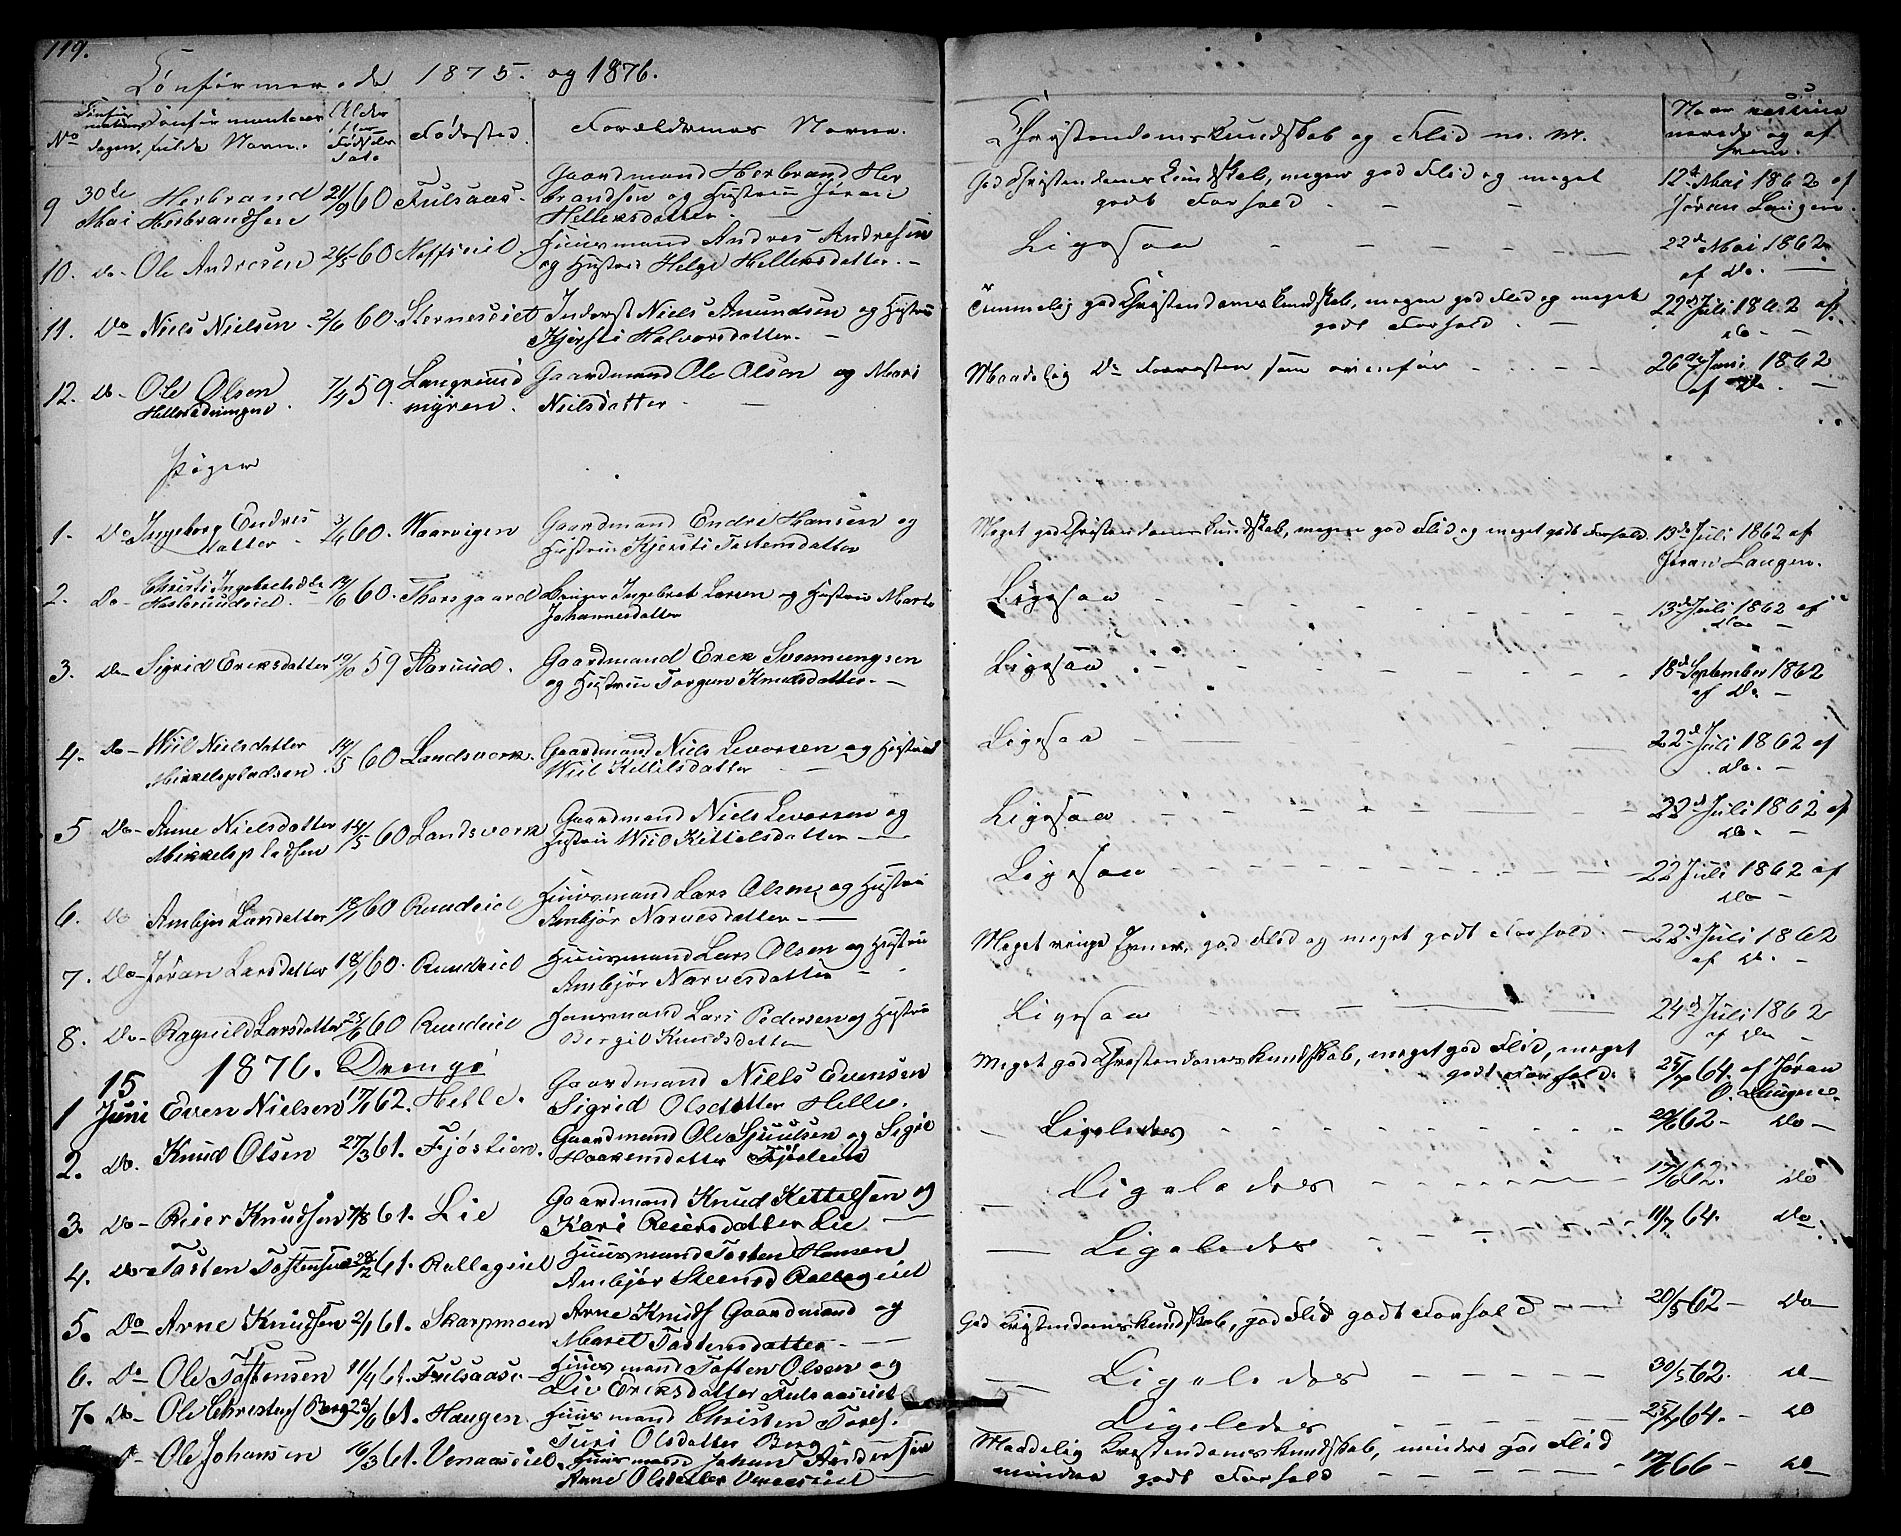 119.
Confirmerede 1875. og 1876.
No
Confirmanternes fulde Navn.
Alder eller Fødselsdato
Fødested.
Forældrenes Navne.
Christendomskundskab og Flid m. M.
Naar vaccinerede og af hvem.
9 30de Mai Herbrand Herbrandsen 21/9 60 Fulsaas. Gaardmand Herbrand Herbrandsen og Hustru Jøran Helleksdatter. God Christendomskundskab, megen god Flid og meget godt Forhold. 12te Mai 1862 af Jøran Laugen.
10. Do Ole Andresen 24/5 60 Gaardmand Andres Andresen og Hustru Helge Helleksdatter. Ligesaa 22de Mai 1862 af Do.
11. Do Niels Nielsen. 2/6 60. Sterneseiet Inderst Niels Amundsen og Hustru Kjersti Halvorsdatter. Temmelig god Christendomskundskab, megen god Flid og meget godt Forhold. 22de Juli 1862 af Do
12. Do Ole Olsen 7/4 59. Langrudmyren. Gaardmand Ole Olsen og Mari Nielsdatter. Maadelig Do Forresten som ovenfor 26de Juni 1862 af Do.
Piger
1. Do Ingeborg Endresdatter 60. Waarvigen Gaardmand Endre Hansen og Hustru Kjersti Tostensdatter Meget god Christendomskundskab, megen god Flid og meget godt Forhold. 13de Juli 1862 af Jøran Laugen.
2. Do Christi Ingebretsdtr 14/6 60. Thorsgaard Bruger Ingebret Larsen og Hustru Marte Johannesdatter Ligesaa 13de Juli 1862 af Do
3. Do Sigrid Eriksdatter 59 Gaardmand Erik Svennungsen og Hustru Torgun Knudsdatter. Ligesaa 18de September 1862 af Do
4. Do Wiil Nielsdatter Mikkelspladsen 14/5 60 Landsverk. Gaardmand Niels Levorsen og Hustru Wiil Kittilsdatter Ligesaa 22de Juli 1862 af Do.
5 Do Anne Nielsdatter Mikkelspladsen 14/5 60 Landsverk Gaardmand Niels Levorsen og Hustru Wiil Kittelsdatter Ligesaa 22de Juli 1862 af Do.
6. Do Ambjør Larsdatter 18/1 60 Ruudeiet Huusmand Lars Olsen og Hustru Ambjør Narvesdatter Ligesaa 22 Juli 1862 af Do
7. Do Jøran Larsdatter 18/1 60. Ruudeiet Huusmand Lars Olsen og Hustru Ambjør Narvesdatter Meget ringe Evner, god Flid og meget godt Forhold. 22de Juli 1862 af Do.
8. Do Ragnild Larsdatter 60 Ruudeiet Huusmand Lars Pedersen og Hustru Bergit Knudsdatter Ligesaa 24de Juli 1862 af Do
1876. Drenge
1 15 Juni Even Nielsen 62. Helle. Gaardmand Niels Evensen Sigrid Olsdatter Helle. Meget god Christendomskundskab, meget god Flid, meget godt Forhold. 25/7 64. af Jøran O. Laugen.
2. Do. Knud Olsen 27/3 61. Fjøstien. Gaardmand Ole Sjuulsen og Sigri Haakensdatter Fjøstein Ligeledes 62 Do
3. Do Reier Knudsen 7/8 61. Lie Gaardmand Knud Kettelsen og Kari Reiersdatter Lie Ligeledes 17/6 62. Do
4. Do Tosten Tostensen 28/2 61. Rallageiet Huusmand Tosten Hansen Ambjør Steensd Rallageiet Ligeledes 11/7 64. Do
5. Do Arne Knudsen 2/1 61. Skarpmoen Arne Knuds Gaardmand og Maret Tostensdatter God Kristendomskundskab, god Flid godt Forhold 20/5 62 Do
6. Do Ole Tostensen 11/4 61. Fulsaas Huusmand Tosten Olsen og Liv Eriksdatter Fulsaaseiet Ligeledes 30/5 62. Do
7. Do Ole Christens Berg 61. Haugen Huusmand Christen Tores. Turi Olsdatter Berg Ligeledes 25/7 64. Do
Do Ole Johansen 16/3 61. Venaaseiet Huusmand Johan Andersen Anne Olsdatter Venaaseiet Maadelig Kristendomskundskab, mindre god Flid mindre godt Forhold 66 Do